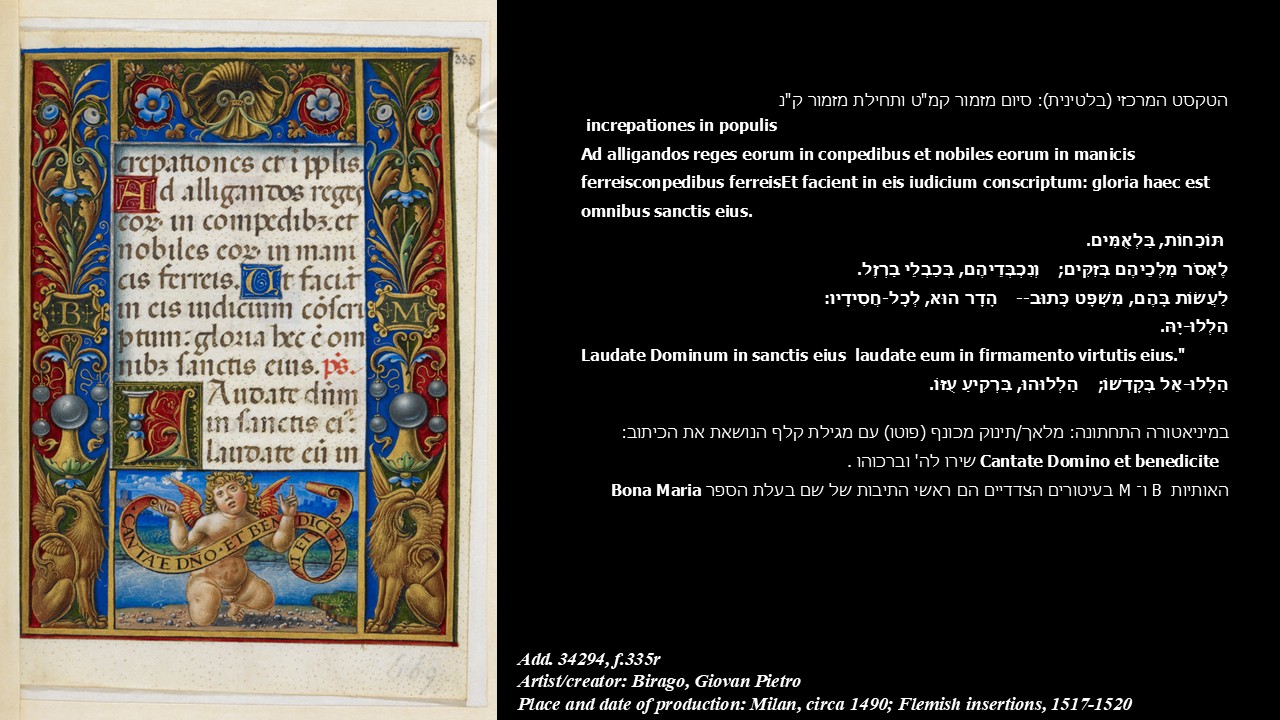 335
crepationes et ī pplis.
Ad alligandos reges
eoꝝ in compedibꝫ et
nobiles eoꝝ in mani
cis ferreis. Ut faciāt
in eis iudicium cōscri
ptum: gloria hec ē om
nibꝫ sanctis eius. ps.
Laudate dūm
in sanctis ei9:
laudate eū in
B
M
CANTATE DÑO·ET BENEDICITE NO
VI EI
669
הטקסט המרכזי (בלטינית): סיום מזמור קמ"ט ותחילת מזמור ק"נ
increpationes in populis
Ad alligandos reges eorum in conpedibus et nobiles eorum in manicis
ferreisconpedibus ferreisEt facient in eis iudicium conscriptum: gloria haec est
omnibus sanctis eius.
תּוֹכֵחוֹת, בַּלְאֻמִּים.
לֶאְסֹר מַלְכֵיהֶם בְּזִקִּים; וְנִכְבְּדֵיהֶם, בְּכַבְלֵי בַרְזֶל.
לַעֲשׂוֹת בָּהֶם, מִשְׁפָּט כָּתוּב-- הָדָר הוּא, לְכָל-חֲסִידָיו:
הַלְלוּ-יָהּ.
Laudate Dominum in sanctis eius laudate eum in firmamento virtutis eius."
הַלְלוּ-אֵל בְּקָדְשׁוֹ; הַלְלוּהוּ, בִּרְקִיעַ עֻזּוֹ.
במיניאטורה התחתונה: מלאך/תינוק מכונף (פוטו) עם מגילת קלף הנושאת את הכיתוב:
Cantate Domino et benedicite שירו לה' וברכוהו .
האותיות B ו־ M בעיטורים הצדדיים הם ראשי התיבות של שם בעלת הספר Bona Maria
Add. 34294, f.335r
Artist/creator: Birago, Giovan Pietro
Place and date of production: Milan, circa 1490; Flemish insertions, 1517-1520